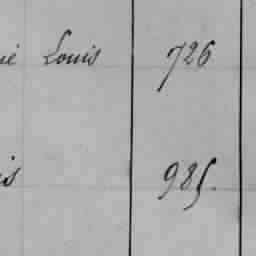 ié Louis 726
is 985.